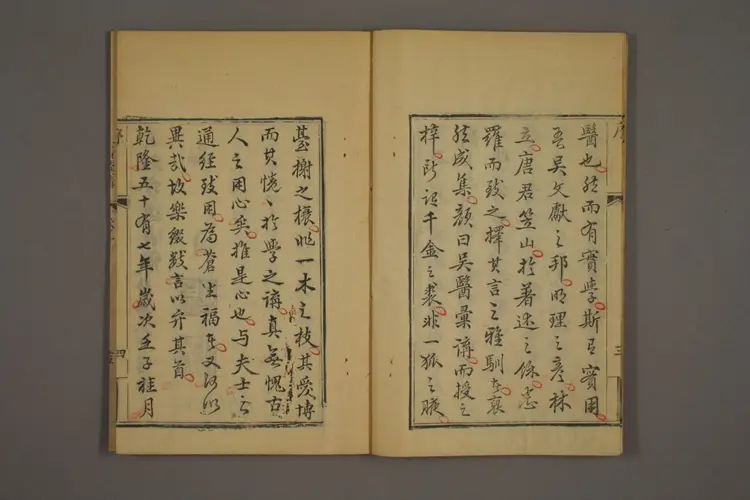 醫也然而有實學斯有實用
吾吳文獻之邦明理之彥林
立唐君笠山於著述之條悉
羅而致之擇其言之雅馴者裒
然成集顏曰吳醫彙講而授之
梓所謂千金之裘非一狐之腋
臺榭之榱非一木之枝其愛博
而其惓惓於學之講真無愧古
人之用心矣推是心也與夫士之
通經致用為蒼生福者又何以
異哉故樂綴數言以弁其首
乾隆五十有七年歲次壬子桂月
序
三
四